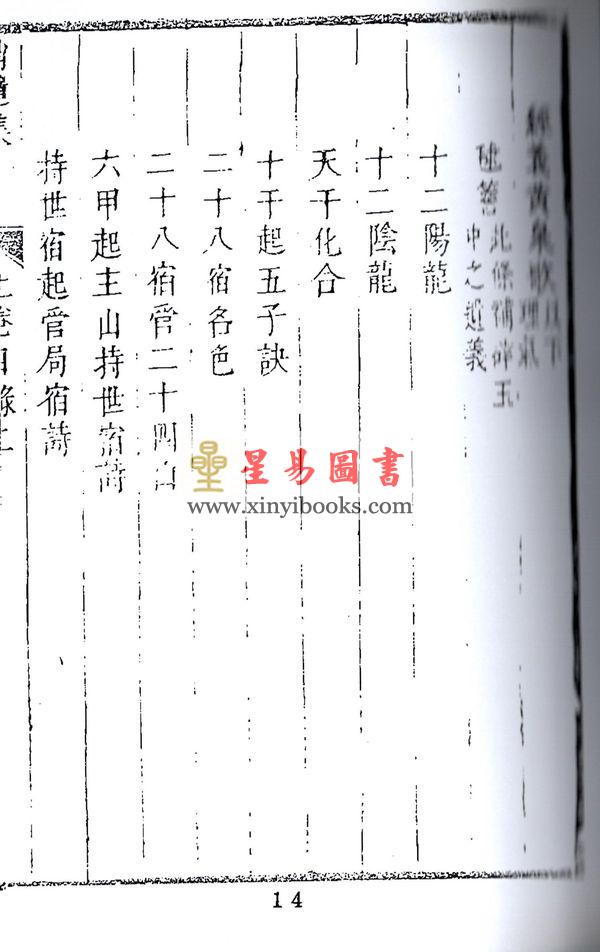 此條補碎玉
中之遺義
十二陽龍
十二陰龍
天干化合
十干起五子訣
二十八宿各色
二十八宿管二十四山
六甲起主山持世宿詩
持世宿起管局宿詩
上卷目錄
星易圖書
www.xinyibooks.com
14